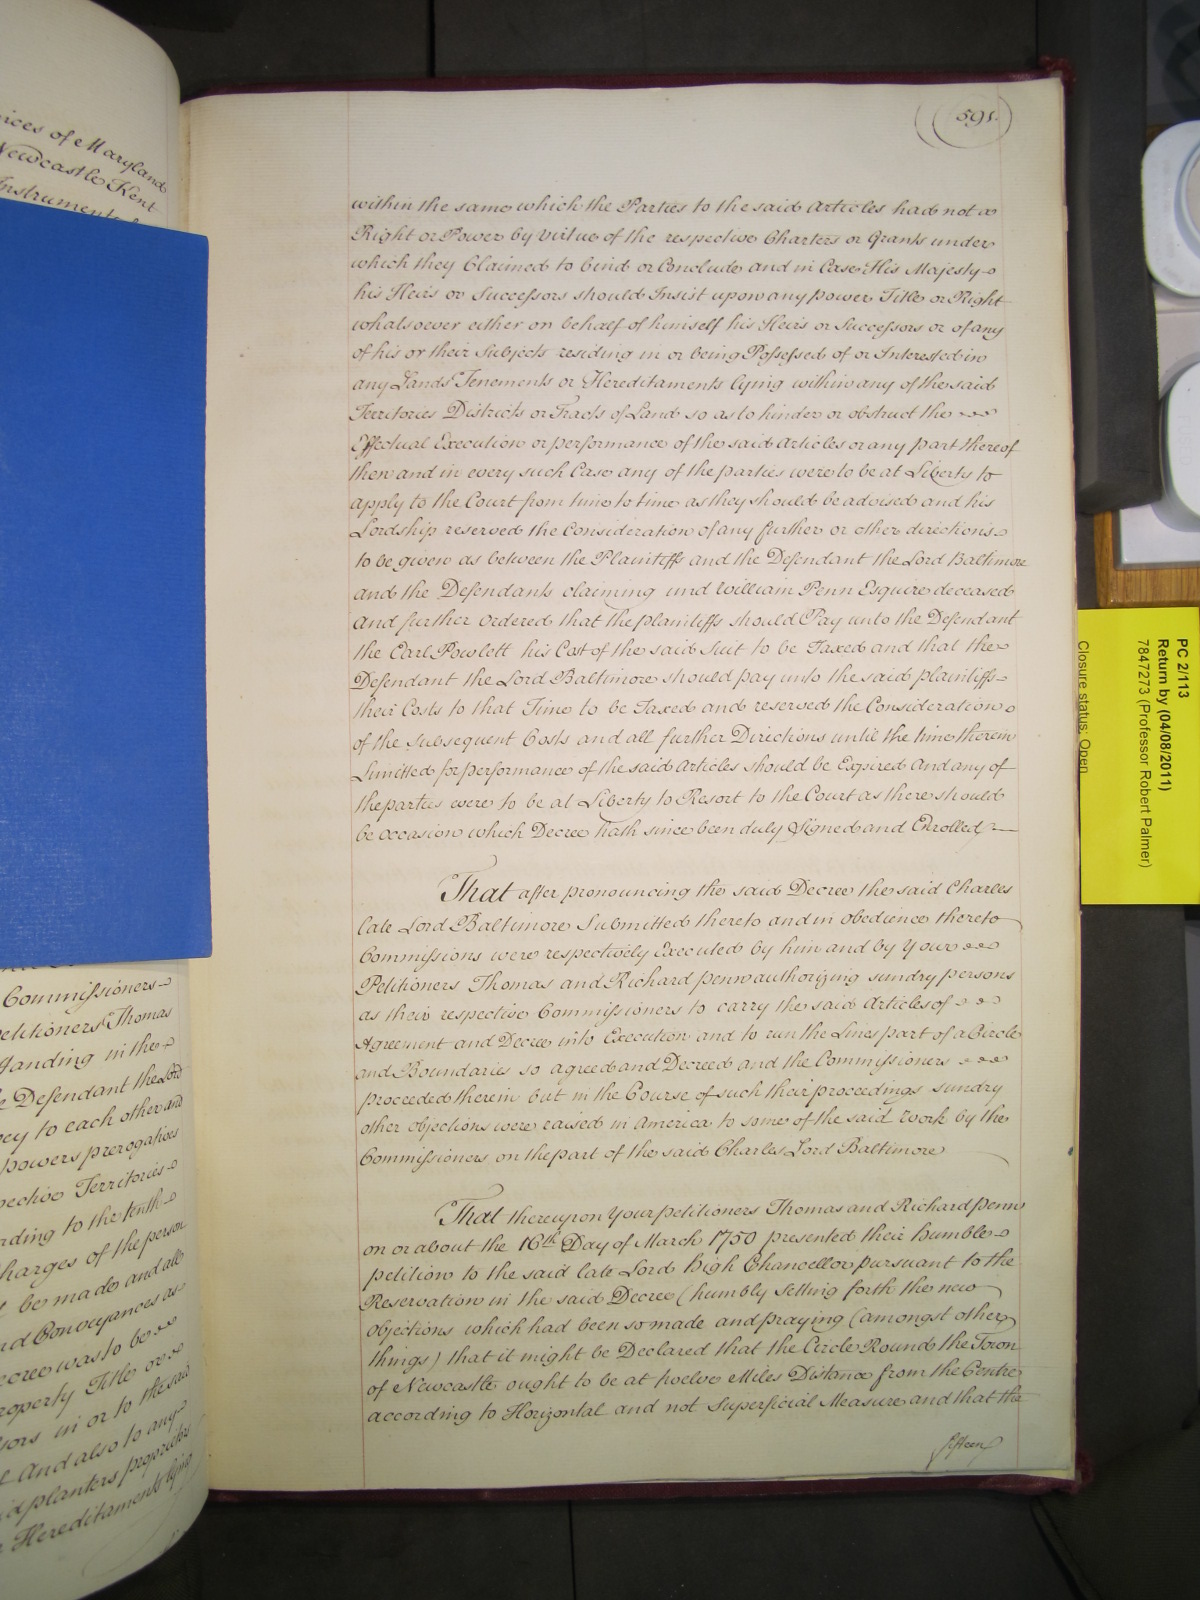 ices of Maryland
Newcastle Kent
Instrument
Commissioners
etitioners Thomas
standing in the
Defendant the Lord
ey to each other and
powers prerogatives
pective Territories
rding to the tenth
harges of the person
be made and all
nd Conveyances as
ecree was to be
roperty Title or
sors in or to the said
And also to any
planters proprietors
Hereditaments lying
591.
within the same which the Parties to the said Articles had not a
Right or Power by virtue of the respective Charters or Grants under
which they Claimed to bind or Conclude and in Case His Majesty
his Heirs or Successors should Insist upon any power Title or Right
whatsoever either on behalf of himself his Heirs or Successors or of any
of his or their Subjects residing in or being Possessed of or Interested in
any Lands Tenements or Hereditaments lying within any of the said
Territories Districts or Tracts of Land so as to hinder or obstruct the
Effectual Execution or performance of the said Articles or any part thereof
then and in every such Case any of the parties were to be at Liberty to
apply to the Court from time to time as they should be advised and his
Lordship reserved the Consideration of any further or other directions
to be given as between the Plaintiffs and the Defendant the Lord Baltimore
and the Defendants claiming und William Penn Esquire deceased
And further Ordered that the plaintiffs should Pay unto the Defendant
the Earl Powlett his Cost of the said Suit to be Taxed and that the
Defendant the Lord Baltimore should pay unto the said plaintiffs
their Costs to that Time to be Taxed and reserved the Consideration
of the subsequent Costs and all further Directions until the time therein
Limitted for performance of the said Articles should be Expired And any of
the parties were to be at Liberty to Resort to the Court as there should
be occasion which Decree hath since been duly Signed and Enrolled
That after pronouncing the said Decree the said Charles
late Lord Baltimore Submitted thereto and in obedience thereto
Commissions were respectively Executed by him and by Your
Petitioners Thomas and Richard Penn authorizing sundry persons
as their respective Commissioners to carry the said Articles of
Agreement and Decree into Execution and to run the Lines part of a Circle
and Boundaries so agreed and Decreed and the Commissioners
proceeded therein but in the Course of such their proceedings sundry
other objections were raised in America to some of the said Work by the
Commissioners on the part of the said Charles Lord Baltimore
That thereupon Your petitioners Thomas and Richard Penn
on or about the 16th Day of March 1750 presented their humble
petition to the said late Lord High Chancellor pursuant to the
Reservation in the said Decree (humbly Setting forth the new
objections which had been so made and praying (amongst other
things) that it might be Declared that the Circle Round the Town
of Newcastle ought to be at twelve Miles Distance from the Centre
according to Horizontal and not Superficial Measure and that the
fifteen
PC 2/113
Return by (04/08/2011)
7847273 (Professor Robert Palmer)
Closure status: Open